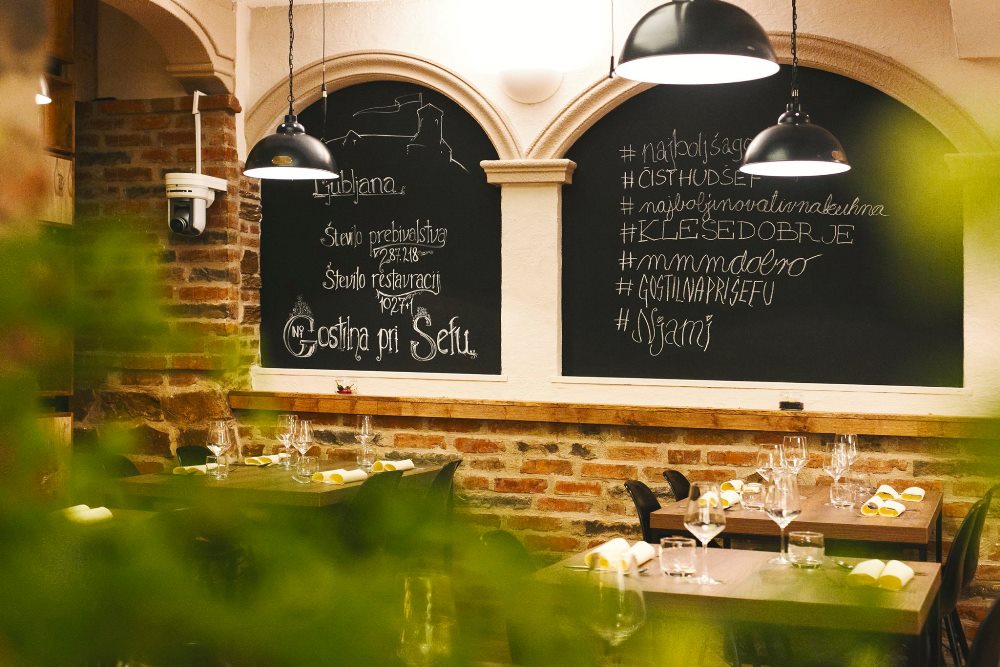 Ljubljana
Število prebivalstva
287.218
Število restavracij
1027+1
№1 Gostilna pri Šefu
#ČISTHUDŠEF
#najboljinovativnakuhna
#KLEŠEDOBRJE
#mmmdobro
#GOSTILNAPRIŠEFU
#Njami